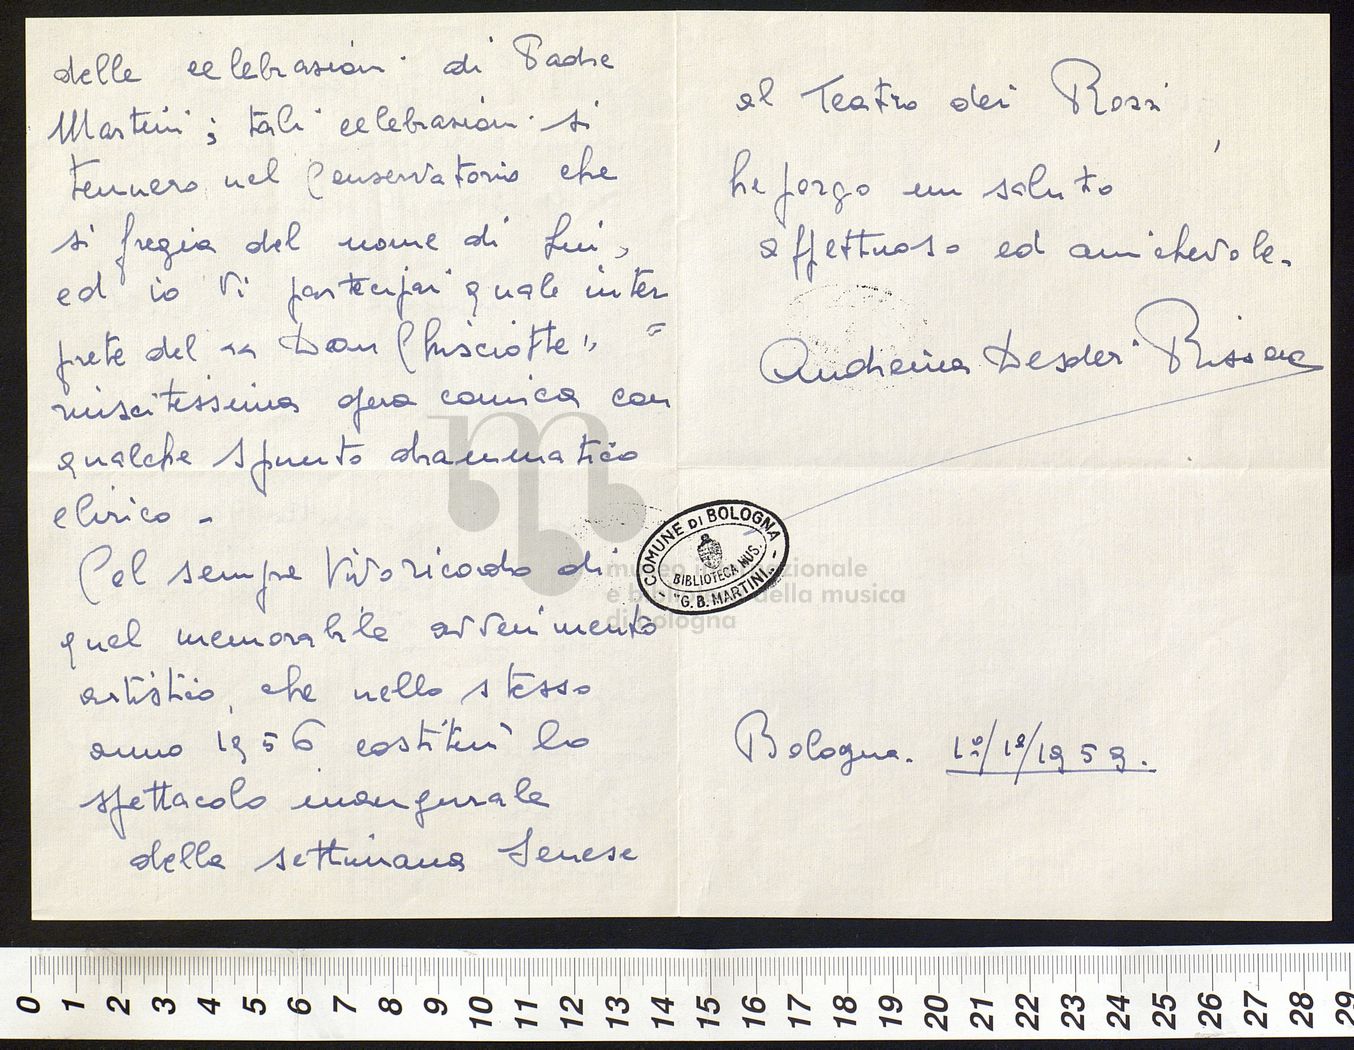 delle celebrazioni di Padre
Martini; tali celebrazioni si
tennero nel Conservatorio che
si fregia del nome di Lui,
ed io vi partecipai quale inter
prete del "Don Chisciotte"
riuscitissima opera comica con
qualche spunto drammatico
e lirico -
Col sempre vivo ricordo di
quel memorabile avvenimento
artistico, che nello stesso
anno 1956 costituì lo
spettacolo inaugurale
della settimana Senese
al Teatro dei Rozzi,
Le porgo un saluto
affettuoso ed amichevole.
Andreina Desderi
COMUNE DI BOLOGNA
BIBLIOTECA MUS.
"G. B. MARTINI" -
museo internazionale
e biblioteca della musica
di bologna
Bologna. 1º/1º/1959.
0 1 2 3 4 5 6 7 8 9 10 11 12 13 14 15 16 17 18 19 20 21 22 23 24 25 26 27 28 29